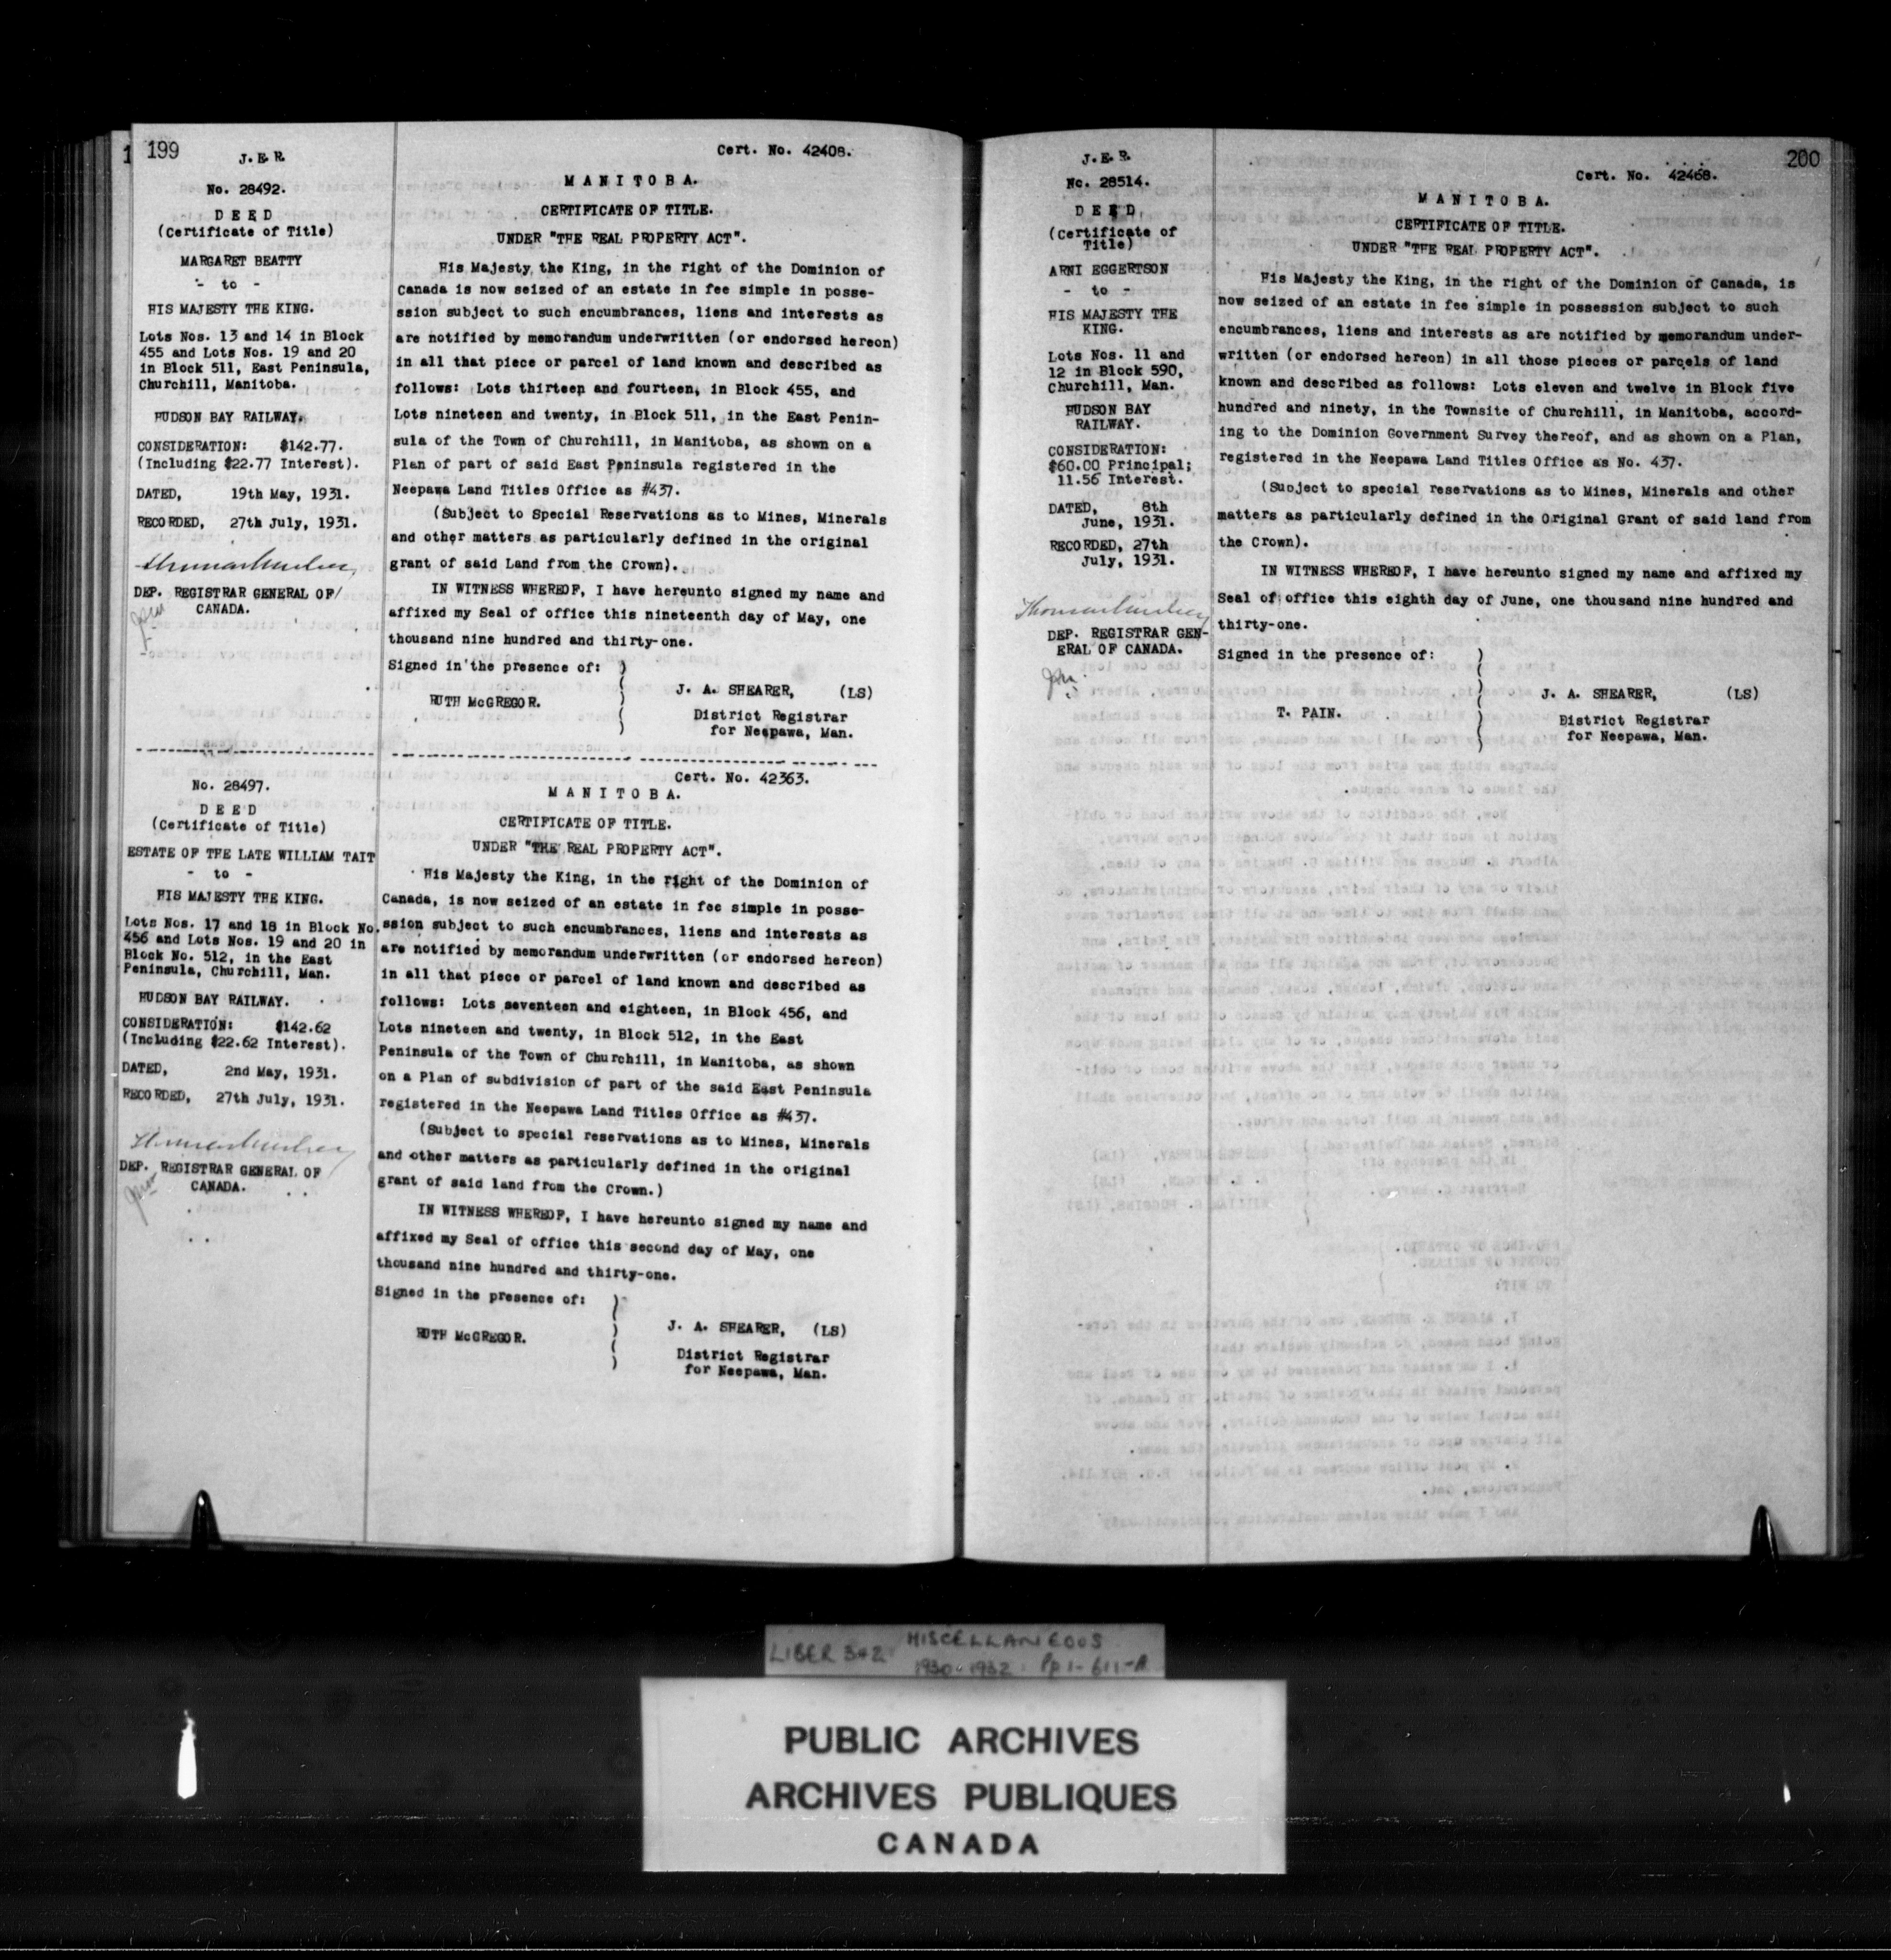 199
J. E. R.
No. 28492.
D E E D
(Certificate of Title)
MARGARET BEATTY
- to -
HIS MAJESTY THE KING.
Lots Nos. 13 and 14 in Block
455 and Lots Nos. 19 and 20
in Block 511, East Peninsula,
Churchill, Manitoba.
HUDSON BAY RAILWAY.
CONSIDERATION: $142.77.
(Including $22.77 Interest).
DATED, 19th May, 1931.
RECORDED, 27th July, 1931.
DEP. REGISTRAR GENERAL OF
CANADA.
Cert. No. 42408.
M A N I T O B A.
CERTIFICATE OF TITLE.
UNDER "THE REAL PROPERTY ACT".
His Majesty the King, in the right of the Dominion of
Canada is now seized of an estate in fee simple in posse-
ssion subject to such encumbrances, liens and interests as
are notified by memorandum underwritten (or endorsed hereon)
in all that piece or parcel of land known and described as
follows: Lots thirteen and fourteen, in Block 455, and
Lots nineteen and twenty, in Block 511, in the East Penin-
sula of the Town of Churchill, in Manitoba, as shown on a
Plan of part of said East Peninsula registered in the
Neepawa Land Titles Office as #437.
(Subject to Special Reservations as to Mines, Minerals
and other matters as particularly defined in the original
grant of said Land from the Crown).
IN WITNESS WHEREOF, I have hereunto signed my name and
affixed my Seal of office this nineteenth day of May, one
thousand nine hundred and thirty-one.
Signed in the presence of:
RUTH McGREGOR.
J. A. SHEARER, (LS)
District Registrar
for Neepawa, Man.
No. 28497.
D E E D
(Certificate of Title)
ESTATE OF THE LATE WILLIAM TAIT
- to -
HIS MAJESTY THE KING.
Lots Nos. 17 and 18 in Block No.
456 and Lots Nos. 19 and 20 in
Block No. 512, in the East
Peninsula, Churchill, Man.
HUDSON BAY RAILWAY.
CONSIDERATION: $142.62
(Including $22.62 Interest).
DATED, 2nd May, 1931.
RECORDED, 27th July, 1931.
DEP. REGISTRAR GENERAL OF
CANADA.
Cert. No. 42363.
M A N I T O B A.
CERTIFICATE OF TITLE.
UNDER "THE REAL PROPERTY ACT".
His Majesty the King, in the right of the Dominion of
Canada, is now seized of an estate in fee simple in posse-
ssion subject to such encumbrances, liens and interests as
are notified by memorandum underwritten (or endorsed hereon)
in all that piece or parcel of land known and described as
follows: Lots seventeen and eighteen, in Block 456, and
Lots nineteen and twenty, in Block 512, in the East
Peninsula of the Town of Churchill, in Manitoba, as shown
on a Plan of subdivision of part of the said East Peninsula
registered in the Neepawa Land Titles Office as #437.
(Subject to special reservations as to Mines, Minerals
and other matters as particularly defined in the original
grant of said land from the Crown.)
IN WITNESS WHEREOF, I have hereunto signed my name and
affixed my Seal of office this second day of May, one
thousand nine hundred and thirty-one.
Signed in the presence of:
RUTH McGREGOR.
J. A. SHEARER, (LS)
District Registrar
for Neepawa, Man.
200
J. E. R.
No. 28514.
D E E D
(Certificate of
Title)
ARNI EGGERTSON
- to -
HIS MAJESTY THE
KING.
Lots Nos. 11 and
12 in Block 590,
Churchill, Man.
HUDSON BAY
RAILWAY.
CONSIDERATION:
$60.00 Principal;
11.56 Interest.
DATED, 8th
June, 1931.
RECORDED, 27th
July, 1931.
DEP. REGISTRAR GEN-
ERAL OF CANADA.
Cert. No. 42468.
M A N I T O B A.
CERTIFICATE OF TITLE.
UNDER "THE REAL PROPERTY ACT".
His Majesty the King, in the right of the Dominion of Canada, is
now seized of an estate in fee simple in possession subject to such
encumbrances, liens and interests as are notified by memorandum under-
written (or endorsed hereon) in all those pieces or parcels of land
known and described as follows: Lots eleven and twelve in Block five
hundred and ninety, in the Townsite of Churchill, in Manitoba, accord-
ing to the Dominion Government Survey thereof, and as shown on a Plan,
registered in the Neepawa Land Titles Office as No. 437.
(Subject to special reservations as to Mines, Minerals and other
matters as particularly defined in the Original Grant of said land from
the Crown).
IN WITNESS WHEREOF, I have hereunto signed my name and affixed my
Seal of office this eighth day of June, one thousand nine hundred and
thirty-one.
Signed in the presence of:
T. PAIN.
J. A. SHEARER, (LS)
District Registrar
for Neepawa, Man.
LIBER 342 MISCELLANEOUS
1930-1932 Pp 1-611-A
PUBLIC ARCHIVES
ARCHIVES PUBLIQUES
CANADA